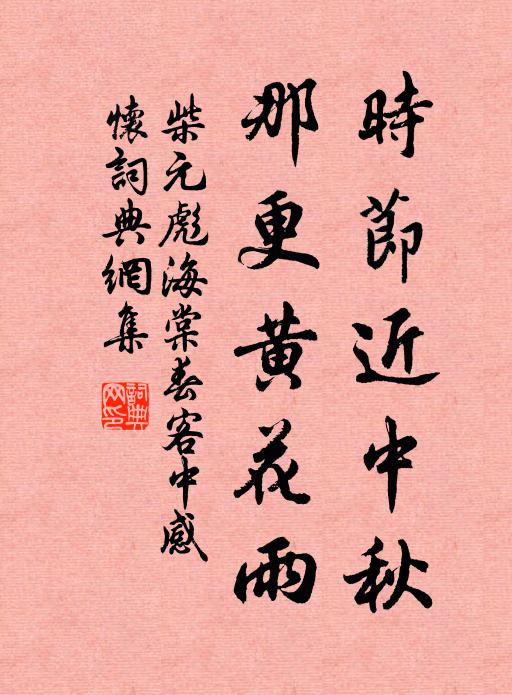 時節近中秋
那更黃花雨
柴元彪海棠春客中感
懷詞典網集
詞典网印